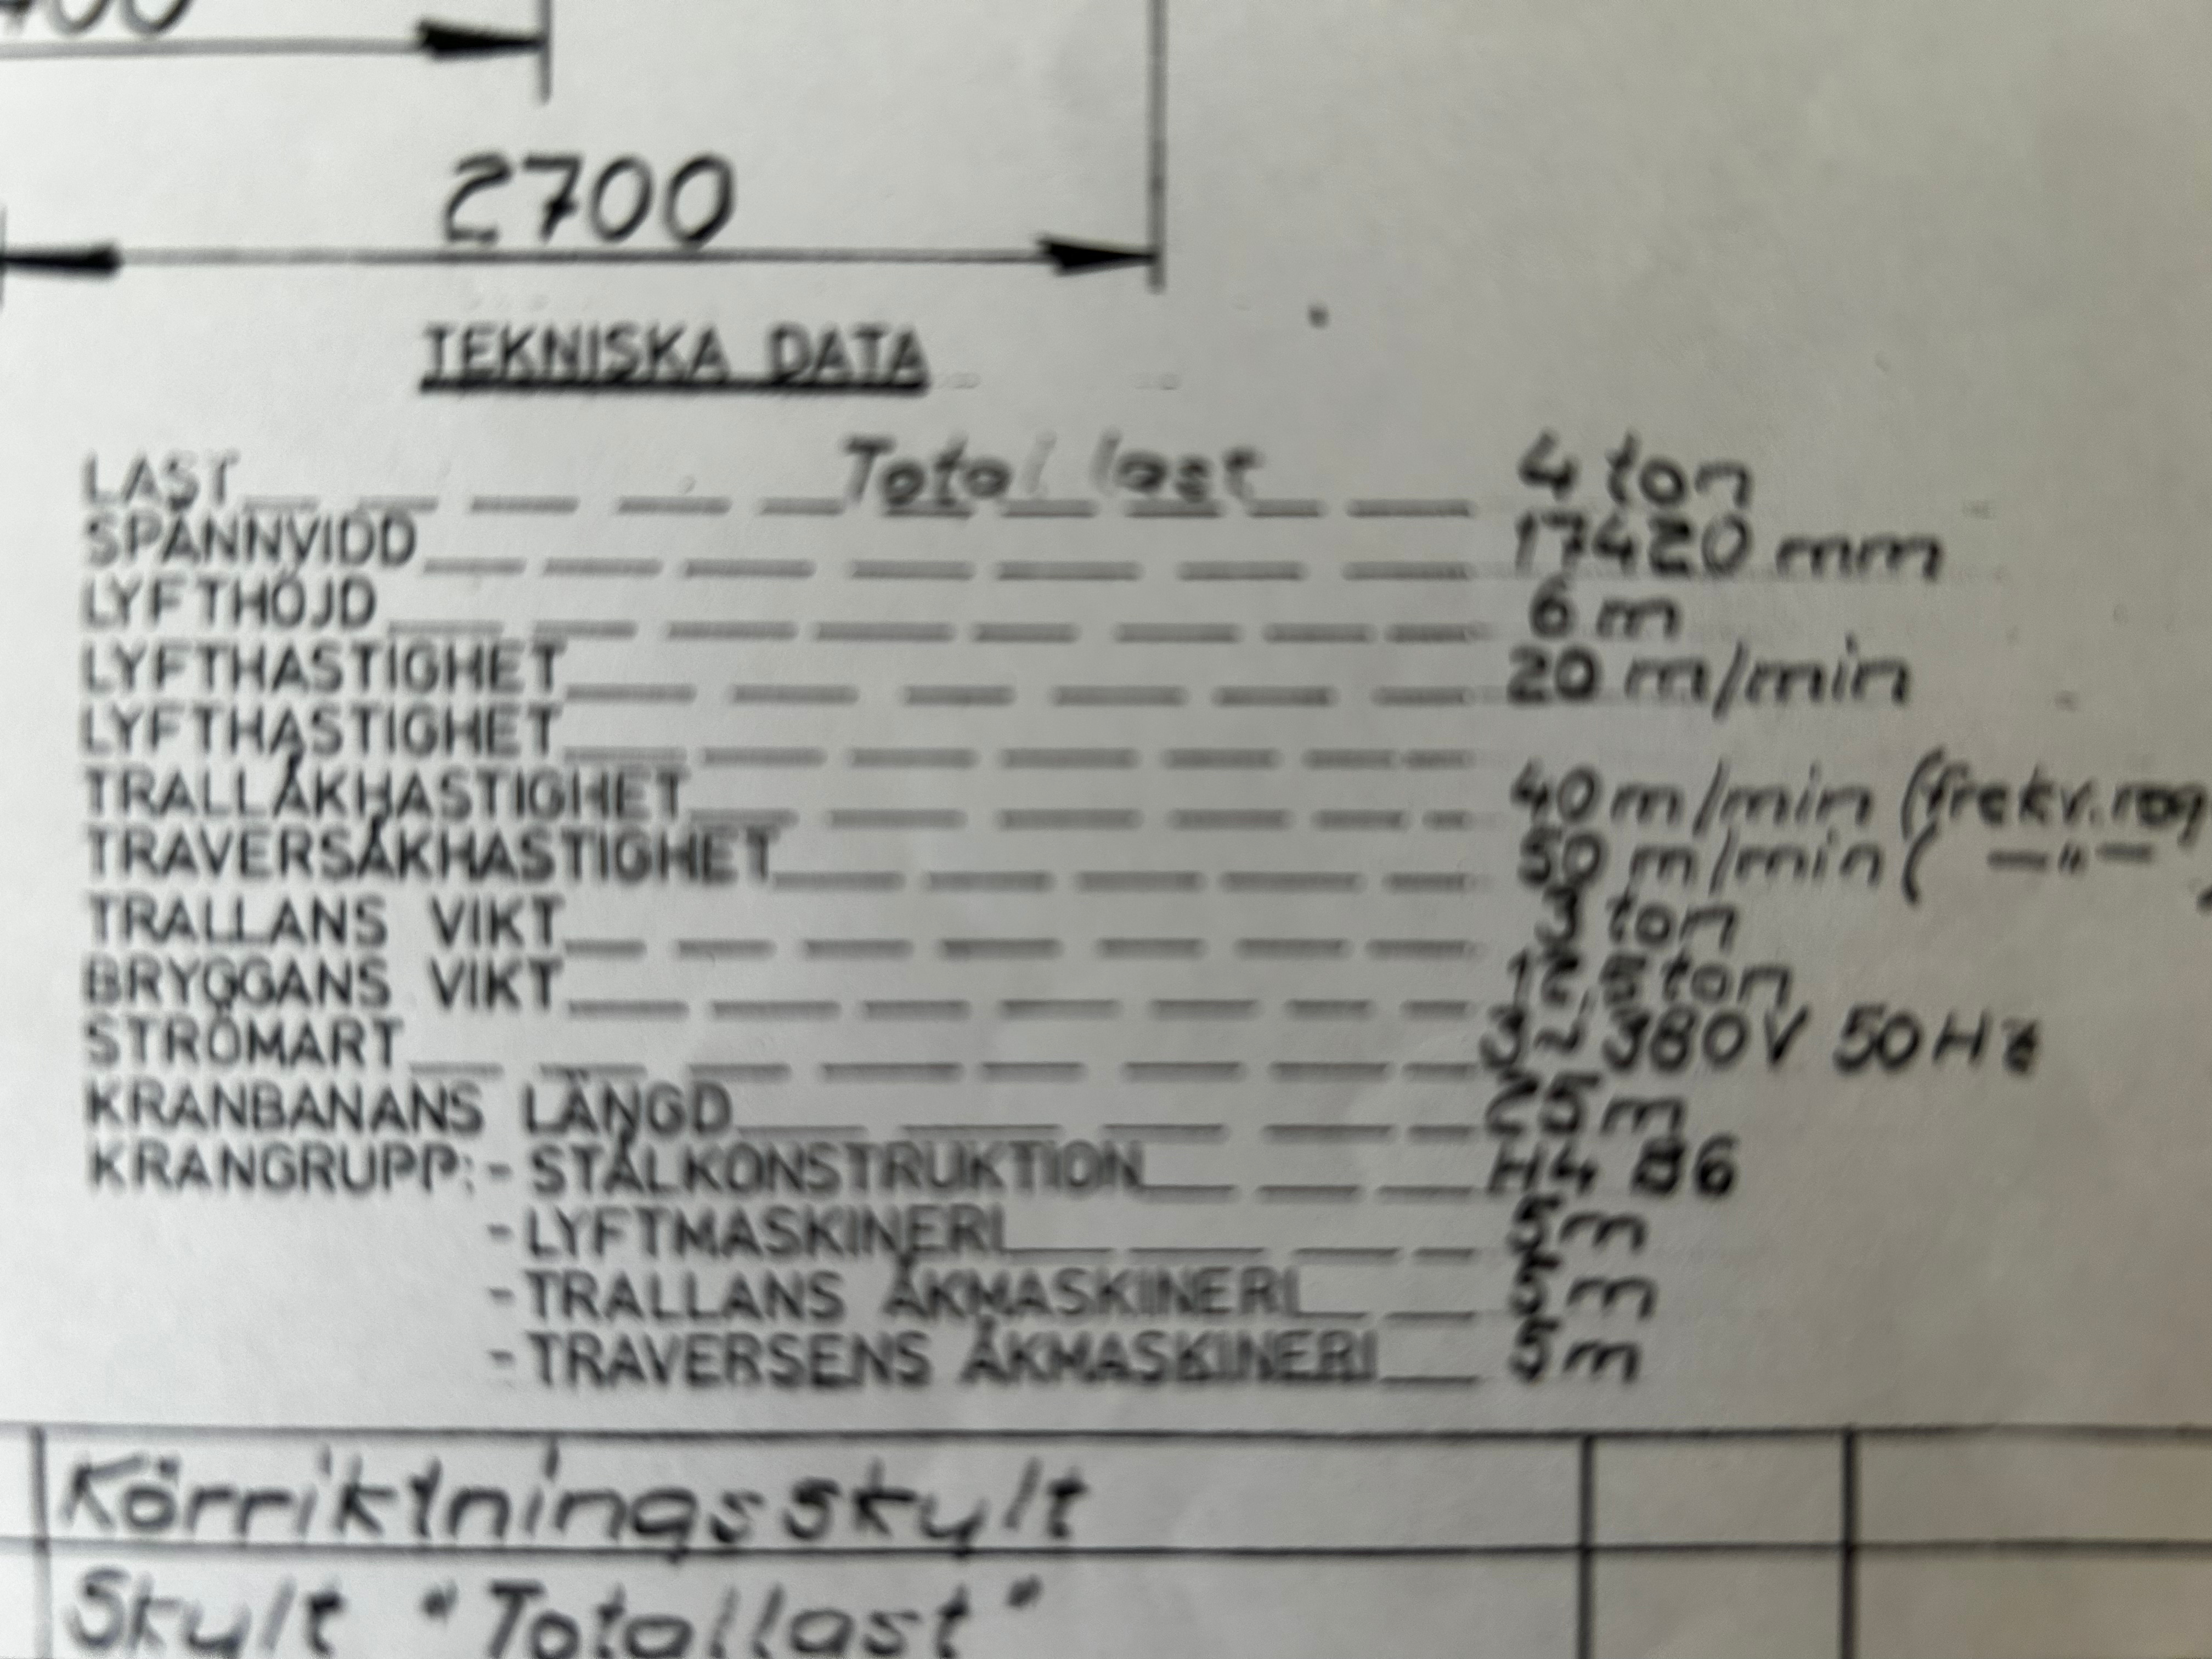 2700
TEKNISKA DATA
LAST Total last 4 ton
SPÄNNVIDD 17420 mm
LYFTHÖJD 6 m
LYFTHASTIGHET 20 m/min
LYFTHASTIGHET
TRALLÅKHASTIGHET 40 m/min (frekv.reg
TRAVERSÅKHASTIGHET 50 m/min ( —"—
TRALLANS VIKT 3 ton
BRYGGANS VIKT ton
STRÖMART 380V 50Hz
KRANBANANS LÄNGD 25 m
KRANGRUPP: - STÅLKONSTRUKTION H4 B6
- LYFTMASKINERI 5m
- TRALLANS ÅKMASKINERI 5m
- TRAVERSENS ÅKMASKINERI 5m
Körriktningsskylt
Skylt "Totallast"